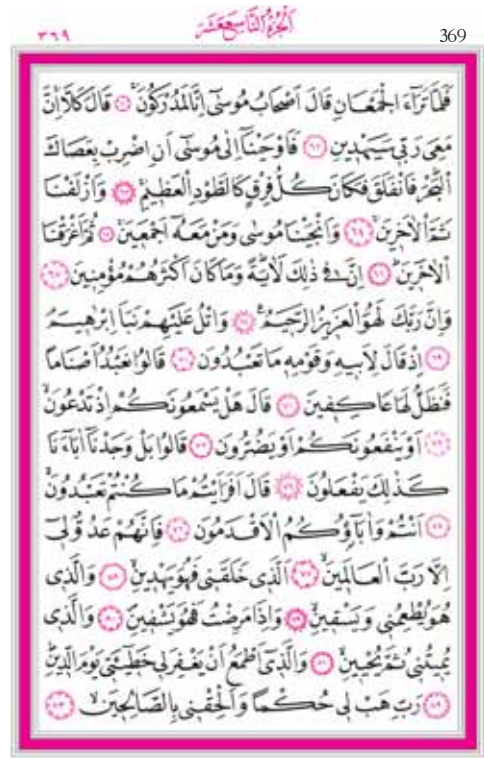 ٣٦٩ اَلْجُزْءُ التَّاسِعَ عَشَرَ 369
فَلَمَّا تَرَٓاءَ الْجَمْعَانِ قَالَ اَصْحَابُ مُوسٰٓى اِنَّا لَمُدْرَكُونَۚ ﴿٦١﴾ قَالَ كَلَّاۚ اِنَّ
مَعِيَ رَبّ۪ي سَيَهْد۪ينِ ﴿٦٢﴾ فَاَوْحَيْنَٓا اِلٰى مُوسٰٓى اَنِ اضْرِبْ بِعَصَاكَ
الْبَحْرَۜ فَانْفَلَقَ فَكَانَ كُلُّ فِرْقٍ كَالطَّوْدِ الْعَظ۪يمِۚ ﴿٦٣﴾ وَاَزْلَفْنَا
ثَمَّ الْاٰخَر۪ينَۚ ﴿٦٤﴾ وَاَنْجَيْنَا مُوسٰى وَمَنْ مَعَهُٓ اَجْمَع۪ينَۚ ﴿٦٥﴾ ثُمَّ اَغْرَقْنَا
الْاٰخَر۪ينَۜ ﴿٦٦﴾ اِنَّ ف۪ي ذٰلِكَ لَاٰيَةًۜ وَمَا كَانَ اَكْثَرُهُمْ مُؤْمِن۪ينَ ﴿٦٧﴾
وَاِنَّ رَبَّكَ لَهُوَ الْعَز۪يزُ الرَّح۪يمُ۟ ﴿٦٨﴾ وَاتْلُ عَلَيْهِمْ نَبَاَ اِبْرٰه۪يمَۢ
﴿٦٩﴾ اِذْ قَالَ لِاَب۪يهِ وَقَوْمِه۪ مَا تَعْبُدُونَ ﴿٧٠﴾ قَالُوا نَعْبُدُ اَصْنَامًا
فَنَظَلُّ لَهَا عَاكِف۪ينَ ﴿٧١﴾ قَالَ هَلْ يَسْمَعُونَكُمْ اِذْ تَدْعُونَۙ
﴿٧٢﴾ اَوْ يَنْفَعُونَكُمْ اَوْ يَضُرُّونَ ﴿٧٣﴾ قَالُوا بَلْ وَجَدْنَٓا اٰبَٓاءَنَا
كَذٰلِكَ يَفْعَلُونَ ﴿٧٤﴾ قَالَ اَفَرَاَيْتُمْ مَا كُنْتُمْ تَعْبُدُونَۙ
﴿٧٥﴾ اَنْتُمْ وَاٰبَٓاؤُ۬كُمُ الْاَقْدَمُونَ ﴿٧٦﴾ فَاِنَّهُمْ عَدُوٌّ ل۪ٓي
اِلَّا رَبَّ الْعَالَم۪ينَۙ ﴿٧٧﴾ اَلَّذ۪ي خَلَقَن۪ي فَهُوَ يَهْد۪ينِۙ ﴿٧٨﴾ وَالَّذ۪ي
هُوَ يُطْعِمُن۪ي وَيَسْق۪ينِۙ ﴿٧٩﴾ وَاِذَا مَرِضْتُ فَهُوَ يَشْف۪ينِۙ ﴿٨٠﴾ وَالَّذ۪ي
يُم۪يتُن۪ي ثُمَّ يُحْي۪ينِۙ ﴿٨١﴾ وَالَّذ۪ٓي اَطْمَعُ اَنْ يَغْفِرَ ل۪ي خَط۪ٓيـَٔت۪ي يَوْمَ الدّ۪ينِۜ
﴿٨٢﴾ رَبِّ هَبْ ل۪ي حُكْمًا وَاَلْحِقْن۪ي بِالصَّالِح۪ينَۙ ﴿٨٣﴾